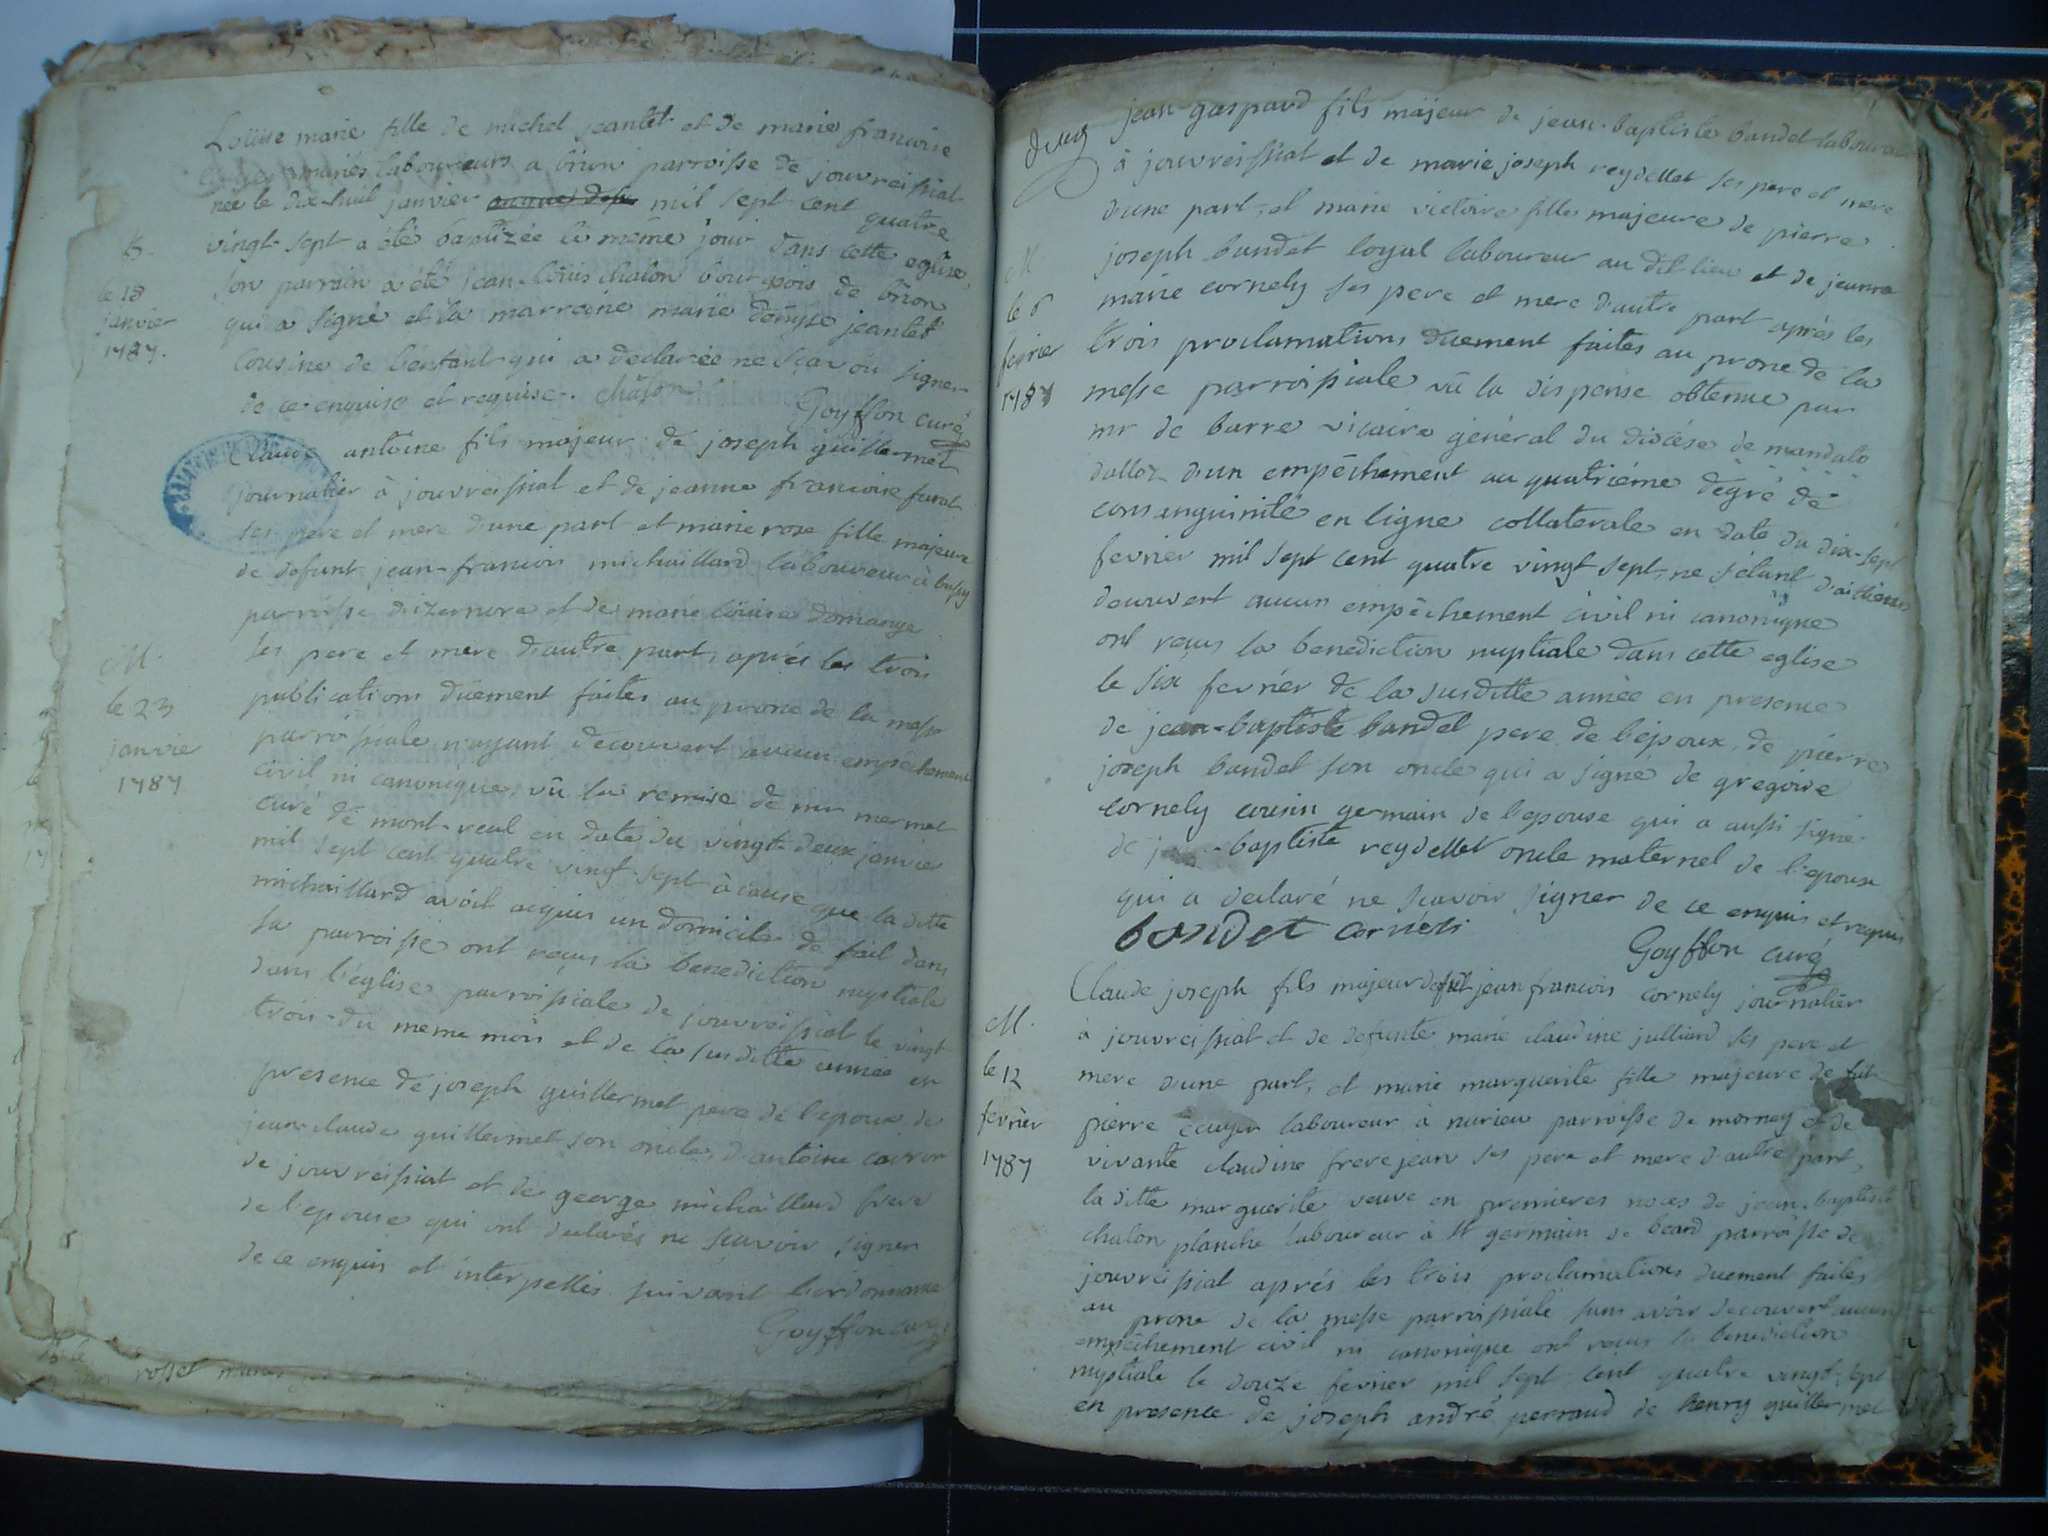 Loüise marie fille de michel jeantet et de marie francoise
mariés laboureurs a brion parroisse de jouvreissiat
née le dix-huit janvier mil sept cent quatre
vingt-sept a été baptizée le même jour dans cette eglise,
son parrain a été jean-loüis chalon bourgeois de brion
qui a signé et la marreine marie denyse jeantet
cousine de l'enfant qui a declarée ne sçavoir signer
de ce enquise et requise. chalon
Goyffon curé
B.
le 18
janvier
1787.
Claude antoine fils majeur de joseph guillermet
journalier à jouvreissiat et de jeanne francoise
ses pere et mere d'une part et marie rose fille majeure
de defunt jean-francois michaillard laboureur à bussy
parroisse dizernore et de marie loüise domange
ses pere et mere d'autre part, après les trois
publications düement faites au prone de la messe
parroissiale n'ayant decouvert aucun empêchement
civil ni canonique, vû la remise de mr mermet
curé de mont-real en date du vingt-deux janvier
mil sept cent quatre vingt-sept à cause que la ditte
michaillard avoit aiquis un domicile de fait dans
sa parroisse ont reçus la benediction nuptiale
dans l'église parroissiale de jouvreissiat le vingt
trois du meme mois et de la susditte année en
presence de joseph guillermet pere de l'epoux, de
jean-claude guillermet son oncle, d'antoine
de jouvreissiat et de george michaillard frere
de l'epouse qui ont declarés ne sçavoir signer
de ce enquis et interpellés suivant l'ordonnance
Goyffon curé
M.
le 23
janvier
1787
rosset
deux
jean-gaspard fils majeur de jean-baptiste bandet laboureur
à jouvreissiat et de marie joseph reydellet ses pere et mere
d'une part, et marie victoire fille majeure de pierre
joseph bandet loyal laboureur au dit lieu et de jeanne
marie cornely ses pere et mere d'autre part après les
trois proclamations düement faites au prone de la
messe parroissiale vû la dispense obtenue par
mr de barre vicaire général du diocése de mandato
d'un empêchement au quatriéme dégré de
consenguinité en ligne collaterale en date du dix-sept
fevrier mil sept cent quatre vingt sept, ne s'etant d'ailleurs
decouvert aucun empêchement civil ni canonique
ont reçus la benediction nuptiale dans cette eglise
le six fevrier de la susditte année en presence
de jean-baptiste bandet pere de l'epoux, de pierre
joseph bandet son oncle qui a signé de gregoire
cornely cousin germain de l'epouse qui a aussi signé
de baptiste reydellet oncle maternel de l'epoux
qui a declaré ne scavoir signer de ce enquis et requis
bandet corneli
Goyffon curé
M
le 6
fevrier
1787
Claude joseph fils majeur de fut jean francois cornely journalier
à jouvreissiat et de defunte marie claudine julliard ses pere et
mere d'une part, et marie marguerite fille majeure de fut
pierre écuyer laboureur à nurieu parroisse de mornay et de
vivante claudine frere jean ses pere et mere d'autre part,
la ditte marguerite veuve en premieres noces de jean-baptiste
chalon planche laboureur à st germain de beard parroisse de
jouvreissiat aprés les trois proclamations duement faites
au prone de la messe parroissiale sans avoir decouvert aucun
empêchement civil ni canonique ont reçus la benediction
nuptiale le douze fevrier mil sept cent quatre vingt-sept
en presence de joseph andré perraud de henry guillermet
M.
le 12
fevrier
1787